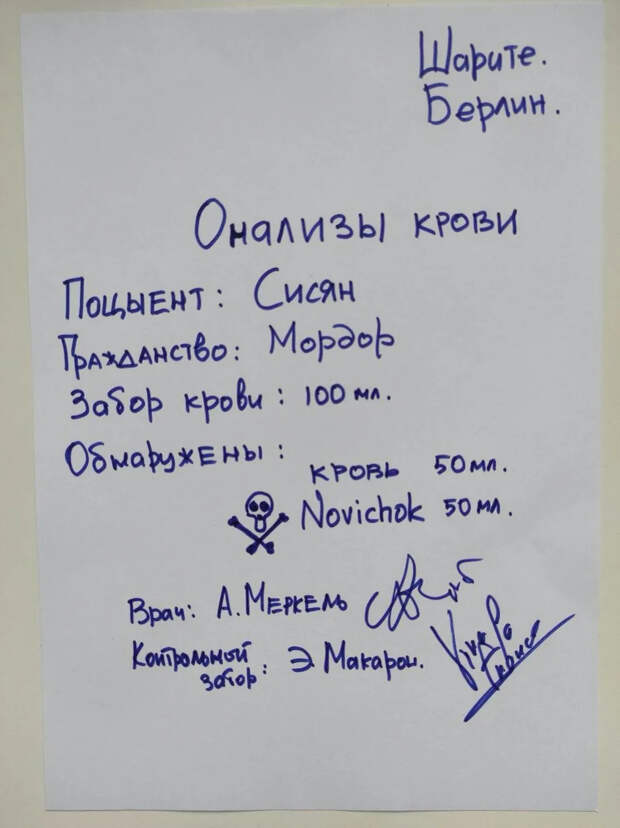 Шарите.
Берлин.
Онализы крови
Поцыент: Сисян
Гражданство: Мордор
Забор крови: 100 мл.
Обнаружены:
кровь 50 мл.
Novichok 50 мл.
Врач: А. Меркель
Контрольный
забор: Э Макарон.